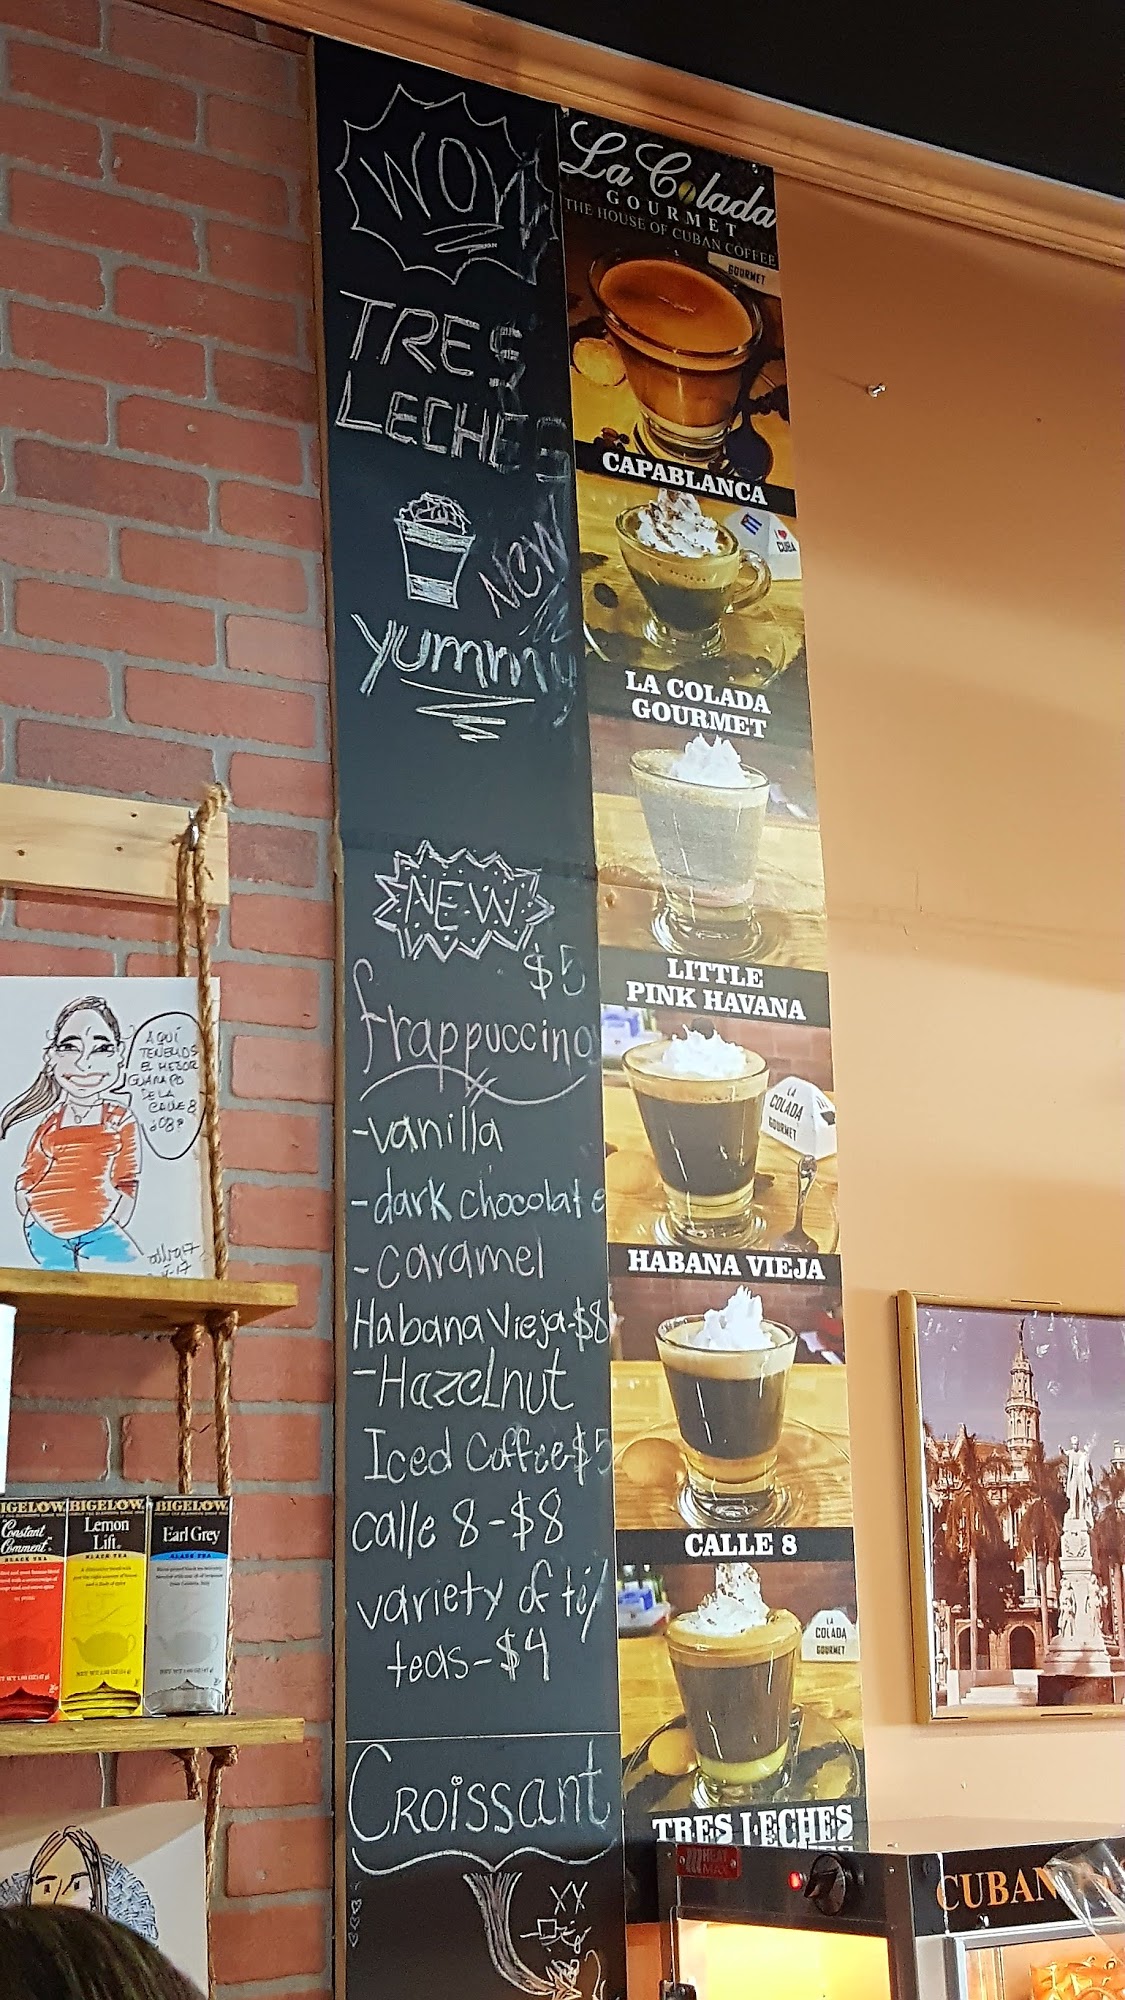 WOW
TRES
LECHES
NEW
yummy
NEW
$5
frappuccino
-vanilla
-dark chocolate
-caramel
Habana Vieja-$8
-Hazelnut
Iced Coffee $5
calle 8-$8
variety of té/
teas-$4
CROISSANT
La Colada
GOURMET
THE HOUSE OF CUBAN COFFEE
GOURMET
CAPABLANCA
I
CUBA
LA COLADA
GOURMET
LITTLE
PINK HAVANA
LA
COLADA
GOURMET
HABANA VIEJA
CALLE 8
LA
COLADA
GOURMET
TRES LECHES
HEAT
MAX
CUBAN
AQUÍ
TENEMOS
EL MEJOR
GUARAPO
DE LA
CALLE 8
BIGELOW
"Constant
Comment"
BLACK TEA
BIGELOW
Lemon
Lift
BLACK TEA
BIGELOW
Earl Grey
BLACK TEA